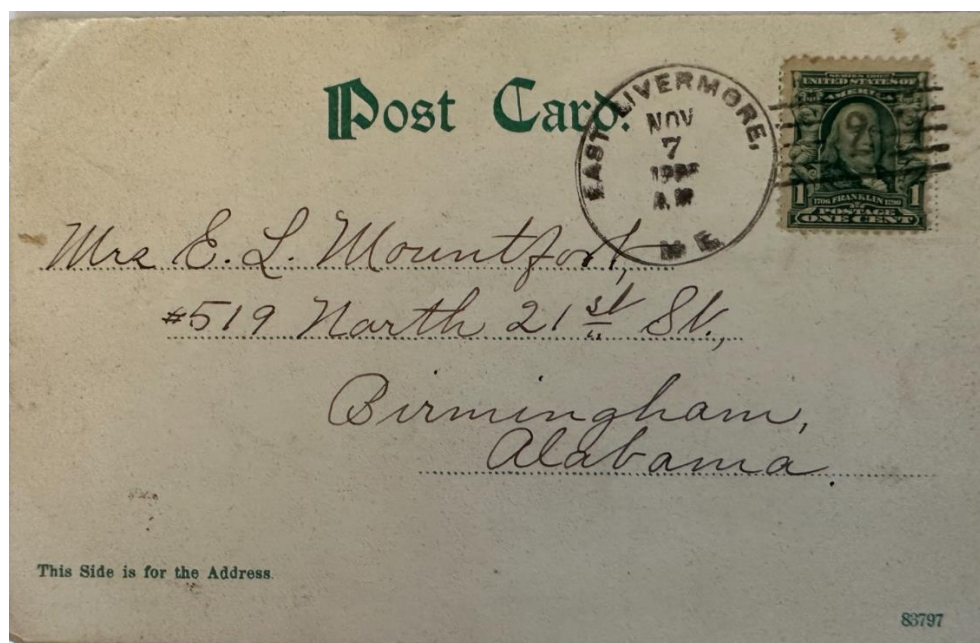 Post Card.
EAST LIVERMORE,
NOV
7
A.M
ME.
SERIES 1902
UNITED STATES OF
AMERICA
1 1706 FRANKLIN 1790 1
POSTAGE
ONE CENT
Mrs E. L. Mountfort,
#519 North 21st St.,
Birmingham,
Alabama.
This Side is for the Address.
83797